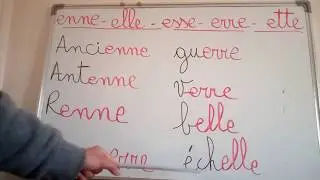 enne - elle - esse - erre - ette
Ancienne guerre
Antenne Verre
Renne belle
échelle